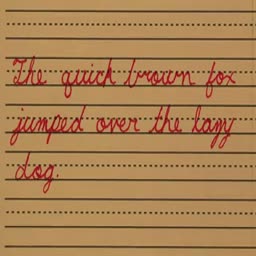 The quick brown fox
jumped over the lazy
dog.